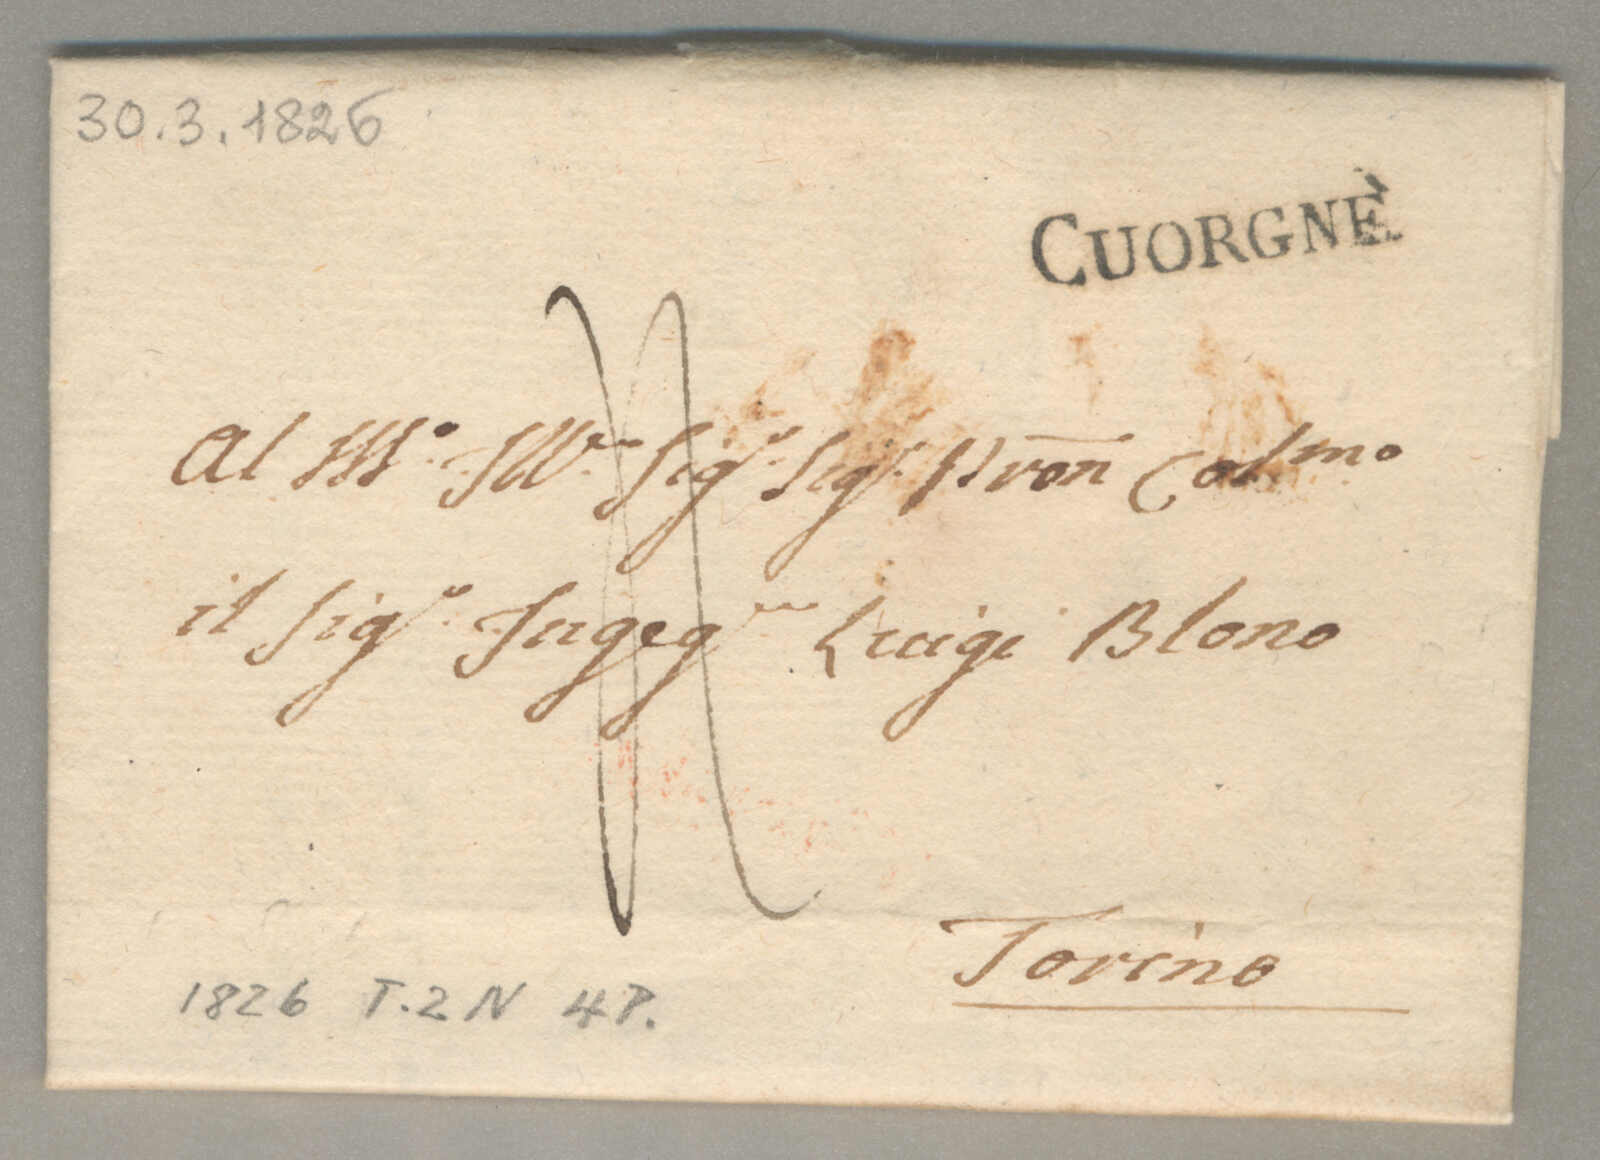 30.3.1826
CUORGNÈ
Al M.º Ill.re Sig.r Sig.r Pron Colmo
il Sig.r Ingeg.re Luigi Blono
Torino
1826 T.2 N 4P.